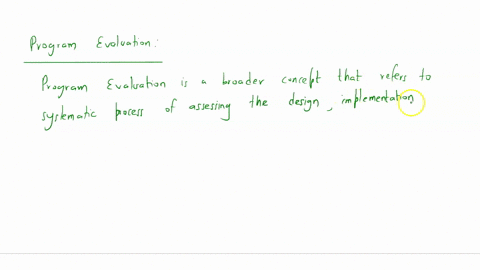 Program Evaluation:
Program Evaluation is a broader concept that refers to
systematic process of assessing the design, implementation